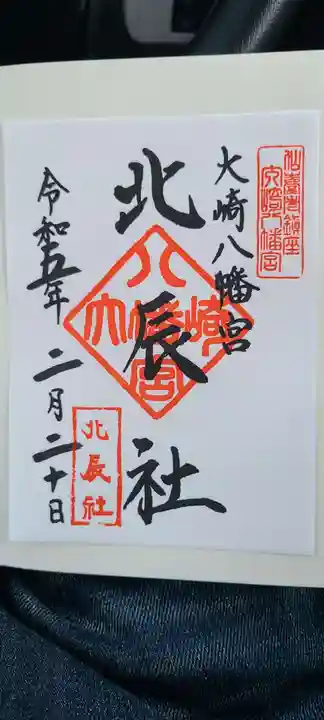 仙臺市鎮座
大崎八幡宮
大崎八幡宮
北辰社
大崎八幡宮
令和五年 二月二十日
北辰社